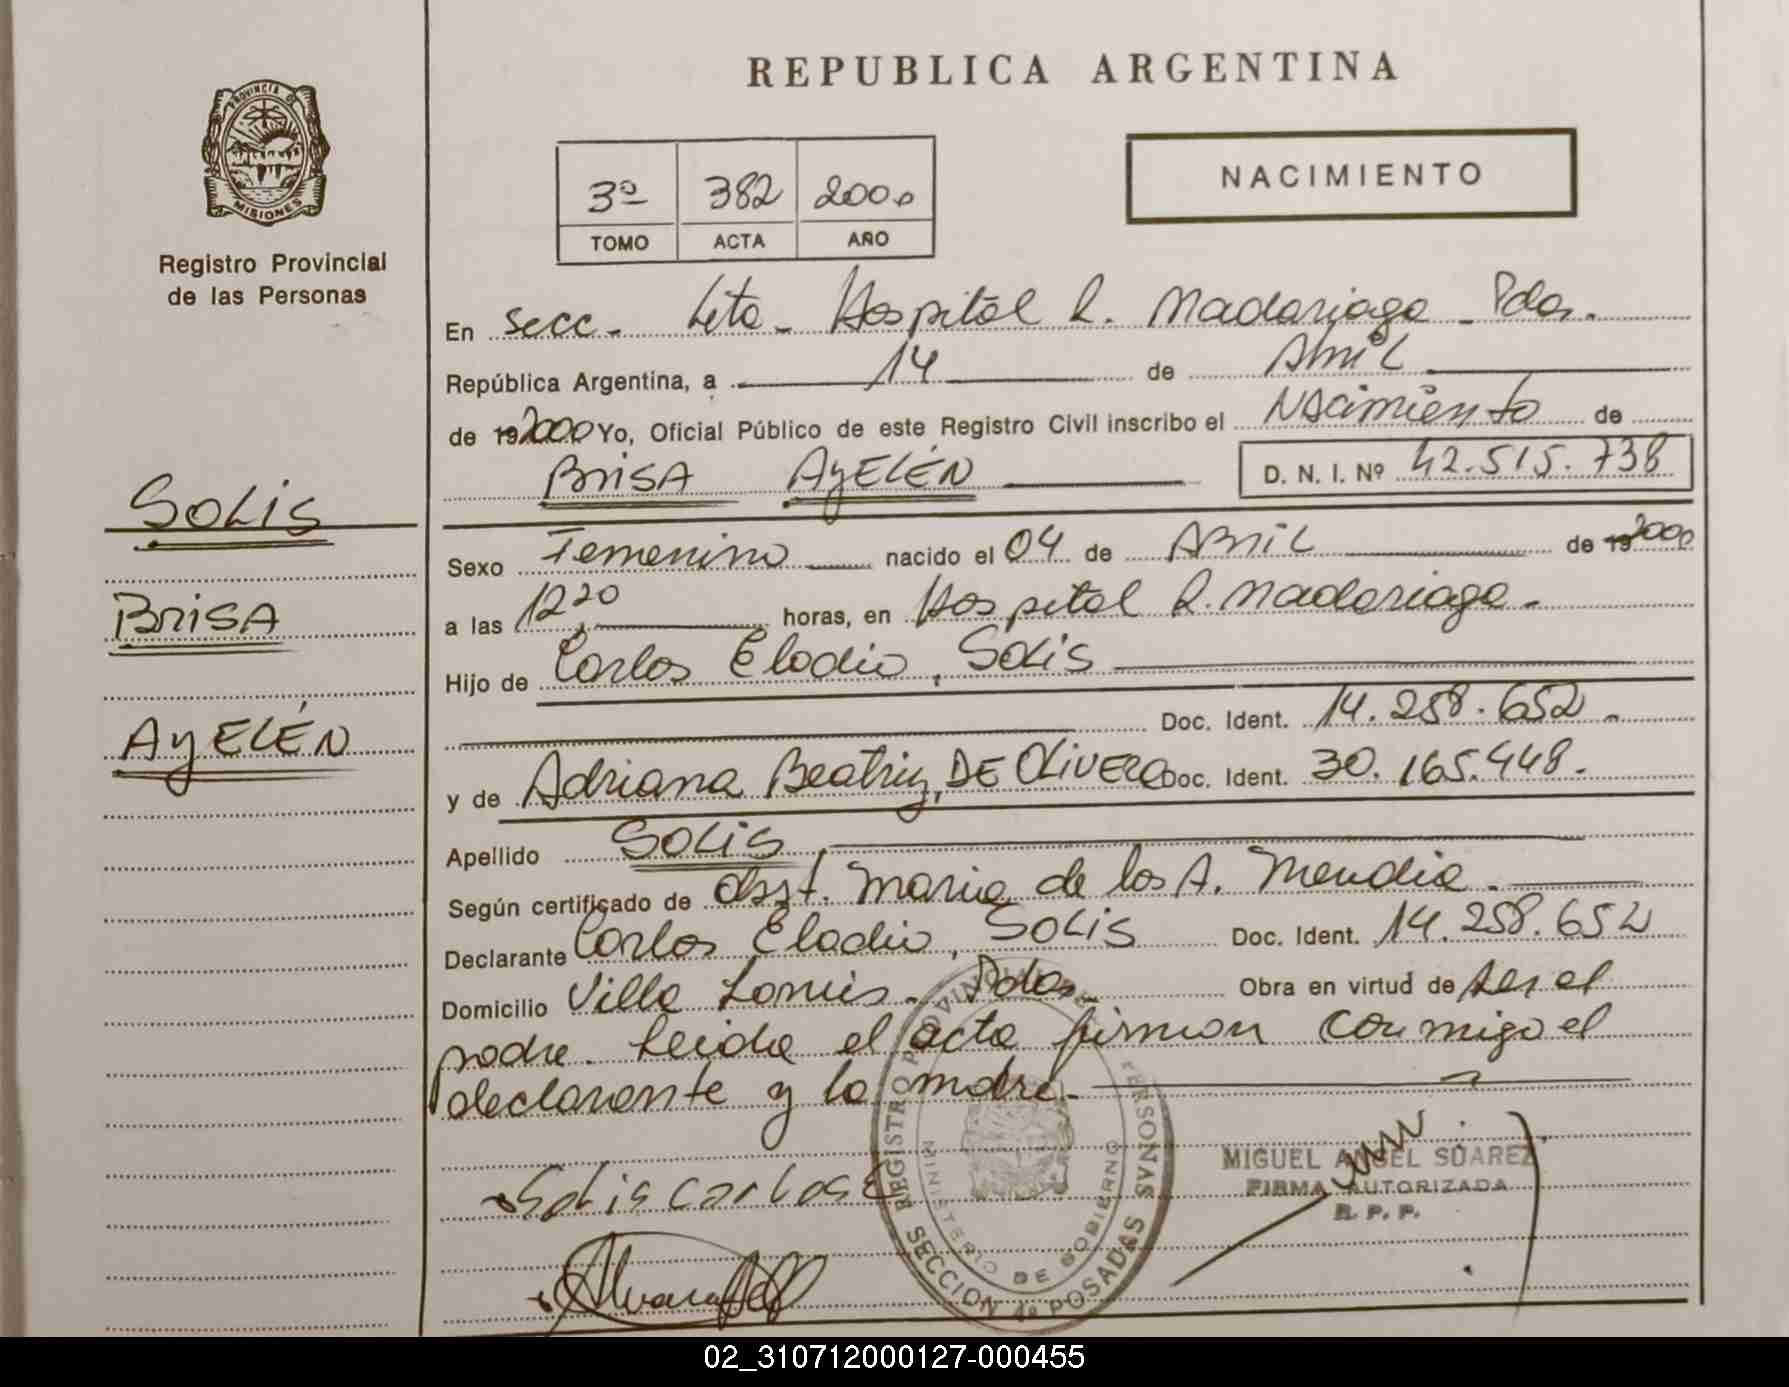 REPUBLICA ARGENTINA
PROVINCIA DE
MISIONES
Registro Provincial
de las Personas
3º 382 2000
TOMO ACTA AÑO
NACIMIENTO
En Secc. 4ta - Hospital R. Madariaga - Pdas.
República Argentina, a 14 de Abril
de 192000 Yo, Oficial Público de este Registro Civil inscribo el Nacimiento de
BRISA AYELÉN D. N. I. Nº 42.515.738
SOLIS
BRISA
AYELÉN
Sexo Femenino nacido el 04 de ABRIL de 192000
a las 12,20 horas, en Hospital R. Madariaga.
Hijo de Carlos Eladio, SOLIS
Doc. Ident. 14.258.652.
y de Adriana Beatriz, DE OLIVERA Doc. Ident. 30.165.448.
Apellido SOLIS
Según certificado de obst. Maria de los A. Mendia.
Declarante Carlos Eladio, SOLIS Doc. Ident. 14.258.652
Domicilio Villa Pdas. Obra en virtud de ser el
padre. Leida el acta firman conmigo el
declarante y la madre.
Solis Carlos E
REGISTRO PROVINCIAL DE PERSONAS
MINISTERIO DE GOBIERNO
SECCION 4ª POSADAS
MIGUEL ANGEL SUAREZ
FIRMA AUTORIZADA
R. P. P.
02_310712000127-000455